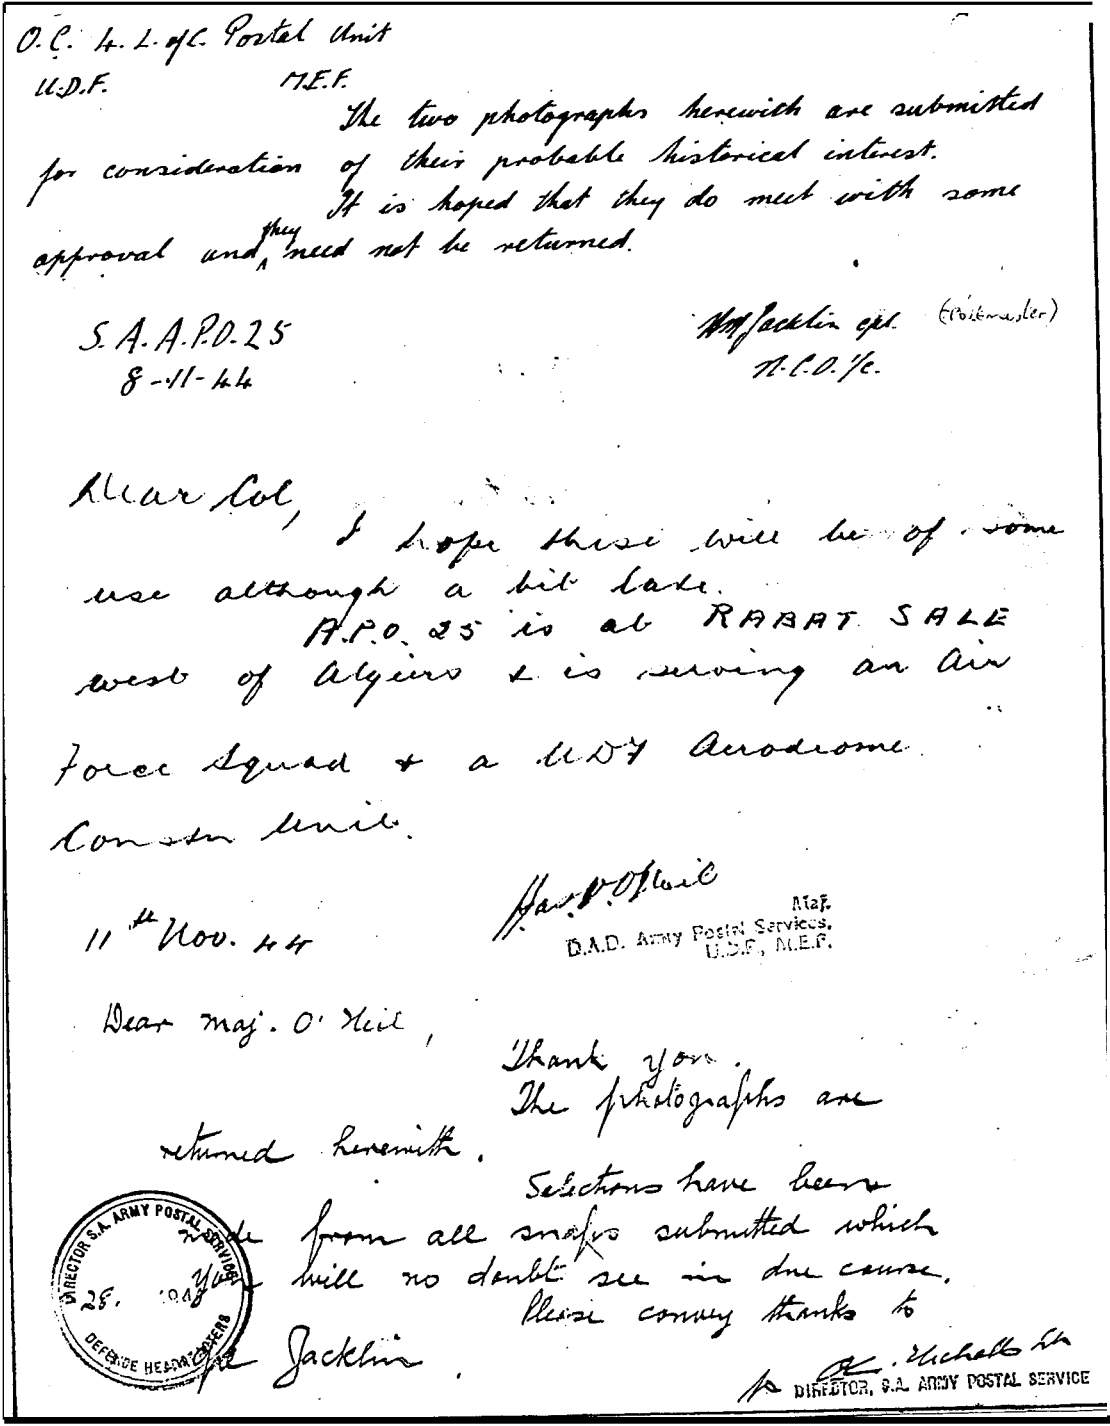 O.C. 4. L. of C. Postal Unit
U.D.F. M.E.F.
The two photographs herewith are submitted
for consideration of their probable historical interest.
It is hoped that they do meet with some
approval and they need not be returned.
S.A.A.P.O.25
8-11-44
Jacklin cpl. (Postmaster)
N.C.O. i/c.
Dear Col,
I hope these will be of some
use although a bit late.
A.P.O. 25 is at RABAT SALE
west of Algiers & is serving an Air
Force Squad & a UDF Aerodrome
Constn Unit.
O'Neil
Maj.
D.A.D. Army Postal Services,
U.D.F., M.E.F.
11th Nov. 44
Dear Maj. O'Neil,
Thank you.
The photographs are
returned herewith.
Selections have been
made from all snaps submitted which
you will no doubt see in due course.
Please convey thanks to
Cpl Jacklin.
DIRECTOR S.A. ARMY POSTAL SERVICE
28.
DEFENCE HEADQUARTERS
DIRECTOR, S.A. ARMY POSTAL SERVICE